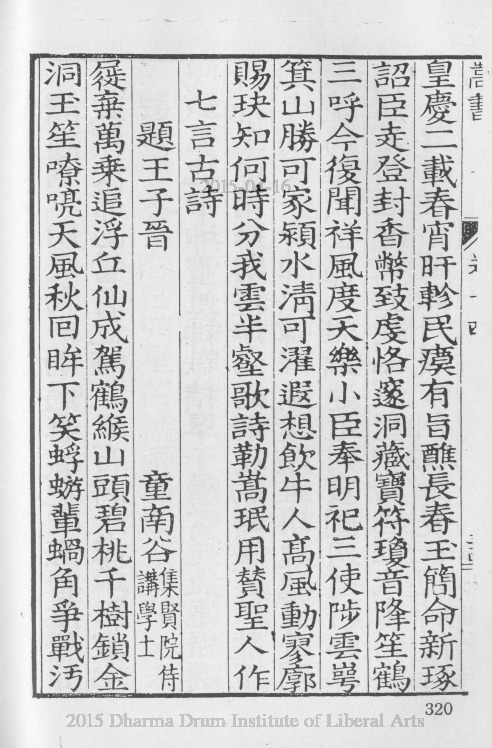 嵩書
皇慶二載春宵旰軫民瘼有旨醮長春玉簡命新琢
詔臣走登封香幣致虔恪邃洞藏寶符瓊音降笙鶴
三呼今復聞祥風度天樂小臣奉明祀三使陟雲崿
箕山勝可家潁水清可濯遐想飲牛人高風動寥廓
賜玦知何時分我雲半壑歌詩勒嵩珉用贊聖人作
七言古詩
題王子晉
童南谷集賢院侍講學士
屣棄萬乗追浮丘仙成駕鶴緱山頭碧桃千樹鎖金
洞玉笙嘹喨天風秋回眸下笑蜉蝣輩蝸角爭戰汚
320
2015 Dharma Drum Institute of Liberal Arts